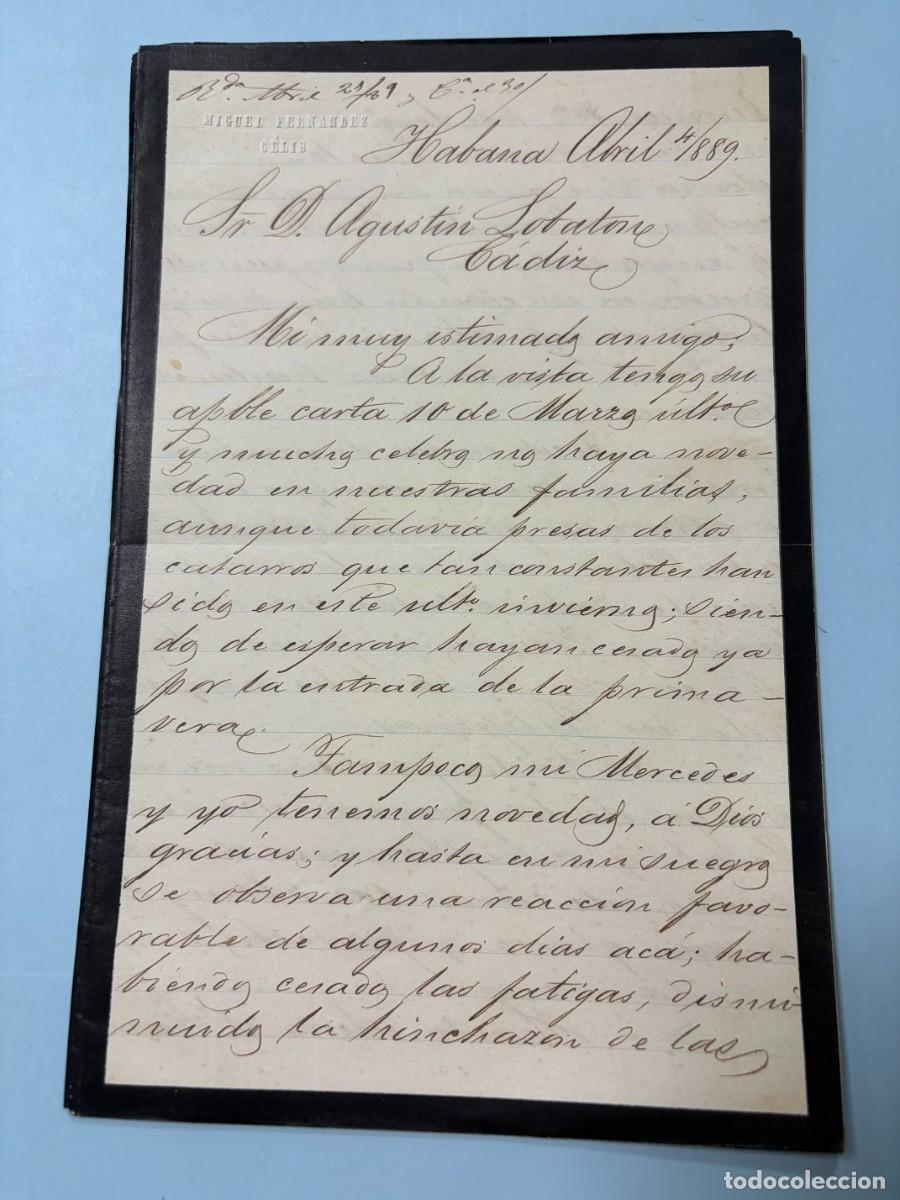 Rda. Abril 21/89 y Cn. el 30/
MIGUEL FERNANDEZ
CÉLIS
Habana Abril 4/889.
Sr. D. Agustin Lobaton
Cádiz
Mi muy estimado amigo;
A la vista tengo su
apble carta 10 de Marzo últo.
y mucho celebro no haya nove-
dad en nuestras familias,
aunque todavia presas de los
catarros que tan constantes han
sido en este ulto. invierno; sien-
do de esperar hayan cesado ya
por la entrada de la prima-
vera.
Tampoco mi Mercedes
y yo tenemos novedad, á Dios
gracias; y hasta en mi suegro
se observa una reacción favo-
rable de algunos dias acá; ha-
biendo cesado las fatigas, dismi-
nuido la hinchazon de las
todocoleccion
todocoleccion.net